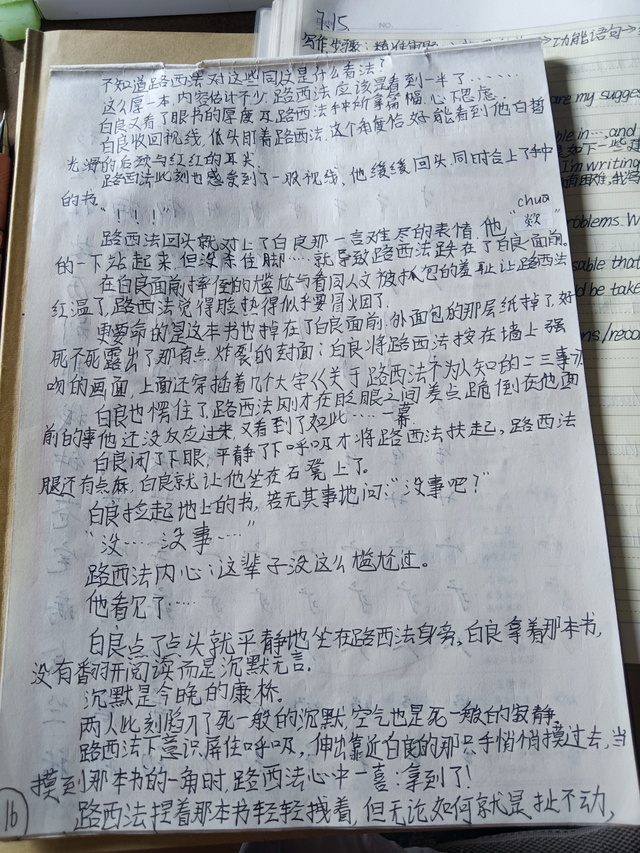 9.15.
NO.
写作步骤:
功能语句→
不知道路西法对这些同人是什么看法?
这么厚一本,内容估计不少,路西法应该是看到一半了……
白良又看了眼书的厚度
白良收回视线,低头盯着路西法,这个角度恰好能看到他白皙
光滑的后颈与红红的耳尖.
路西法此刻也感受到了一股视线,他缓缓回头,同时合上了手中
的书.
"!!!"
chua
路西法回头就对上了白良那一言难尽的表情,他"欻"
的一下站起来,但没踩住脚……就导致路西法跌在了白良面前。
在白良面前摔倒的尴尬与看同人文被抓包的羞耻让路西法
红温了,路西法觉得脸热得似乎要冒火因了.
更要命的是这本书也掉在了白良面前,外面包的那层纸掉了,好
死不死露出了那有点炸裂的封面:白良将路西法按在墙上强
吻的画面,上面还穿插着几个大字《关于路西法不为人知的二三事》
白良也愣住了,路西法刚才在眨眼之间差点跪倒在他面
前的事他还没反应过来,又看到了如此……一幕.
白良闭了下眼,平静了下呼吸才将路西法扶起,路西法
腿还有点麻,白良就让他坐在石凳上了。
白良捡起地上的书,若无其事地问:"没事吧?"
"没……没事……"
路西法内心:这辈子没这么尴尬过。
他看见了……
白良点了点头就平静地坐在路西法身旁,白良拿着那本书,
没有翻开阅读而是沉默无言.
沉默是今晚的康桥。
两人此刻陷入了死一般的沉默,空气也是死一般的寂静.
路西法下意识屏住呼吸,伸出靠近白良的那只手悄悄摸过去,当
摸到那本书的一角时,路西法心中一喜:拿到了!
路西法捏着那本书轻轻拽着,但无论如何就是扯不动,
16
my sugges
and
I'm writing
problems. W
sable that
d be take